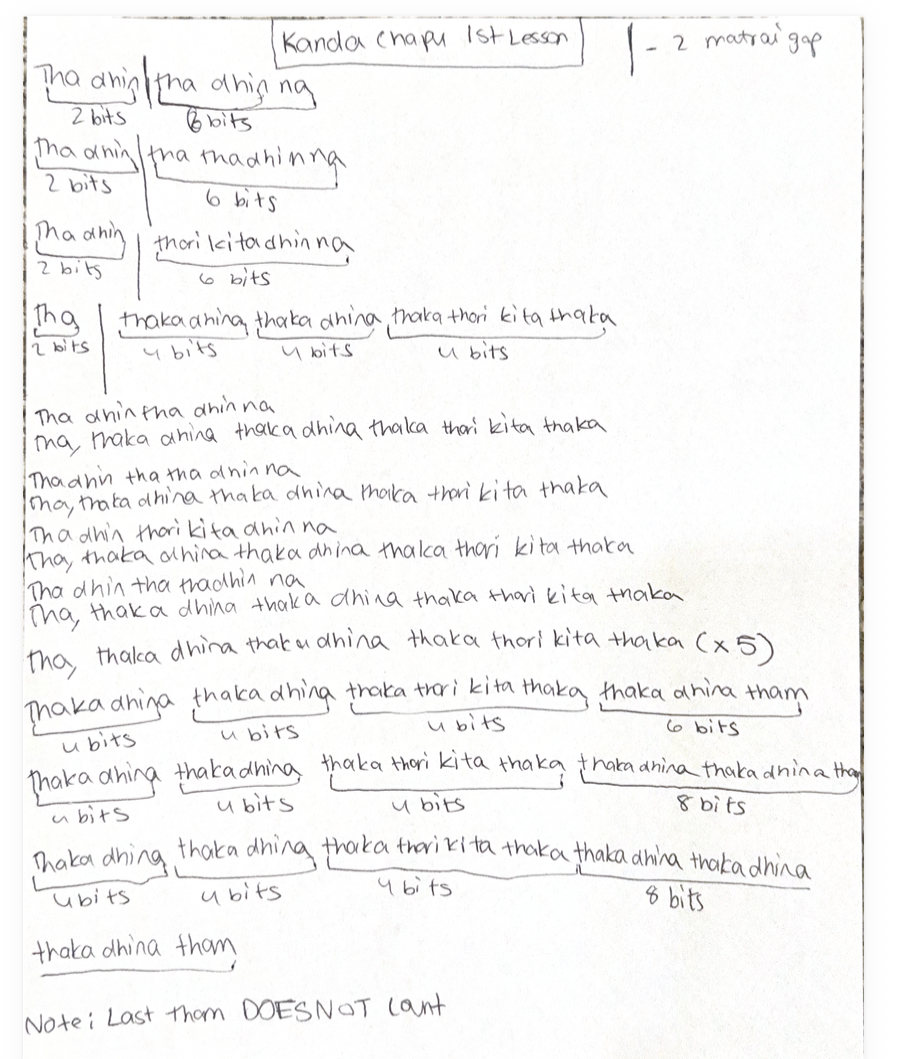 Kanda Chapu 1st Lesson | - 2 matrai gap
Tha dhin | tha dhin na
2 bits 6 bits
Tha dhin | tha thadhin na
2 bits 6 bits
Tha dhin | thori kita dhin na
2 bits 6 bits
Tha | thaka dhina thaka dhina thaka thori kita thaka
2 bits 4 bits 4 bits 4 bits
Tha dhin tha dhin na
Tha, thaka dhina thaka dhina thaka thori kita thaka
Tha dhin tha tha dhin na
Tha, thaka dhina thaka dhina thaka thori kita thaka
Tha dhin thori kita dhin na
Tha, thaka dhina thaka dhina thaka thori kita thaka
Tha dhin tha thadhin na
Tha, thaka dhina thaka dhina thaka thori kita thaka
Tha, thaka dhina thaka dhina thaka thori kita thaka (x5)
Thaka dhina thaka dhina thaka thori kita thaka thaka dhina tham
4 bits 4 bits 4 bits 6 bits
Thaka dhina thaka dhina thaka thori kita thaka thaka dhina thaka dhina tha
4 bits 4 bits 4 bits 8 bits
Thaka dhina thaka dhina thaka thori kita thaka thaka dhina thaka dhina
4 bits 4 bits 4 bits 8 bits
thaka dhina tham
Note: Last tham DOES NOT count